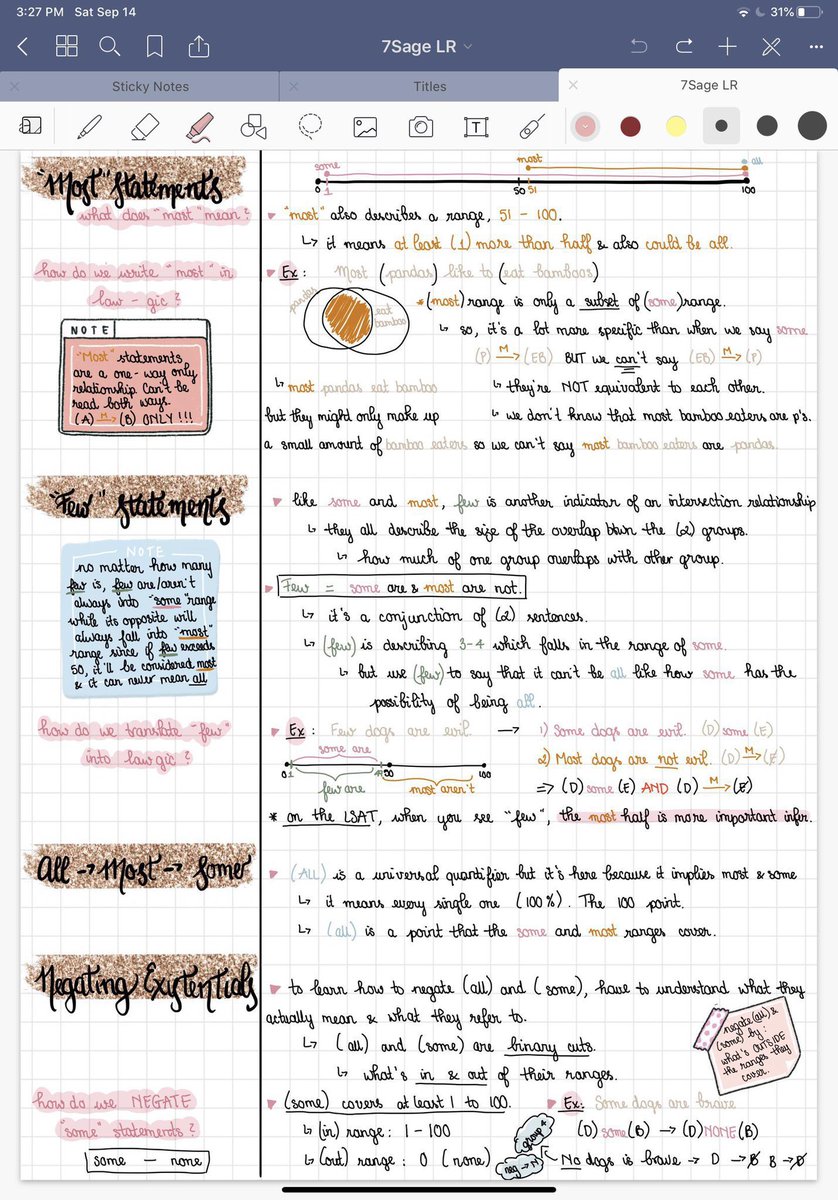 3:27 PM Sat Sep 14
31%
7Sage LR
Sticky Notes
Titles
7Sage LR
T
some
most
all
0
1
50
51
100
"Most" Statements
what does "most" mean?
"most" also describes a range, 51 - 100.
↳ it means at least (1) more than half & also could be all.
how do we write "most" in
law-gic?
Ex: Most (pandas) like to (eat bamboos)
pandas
eat
bamboo
*(most) range is only a subset of (some) range.
↳ so, it's a lot more specific than when we say some
(P) M→ (EB) BUT we can't say (EB) M→ (P)
NOTE
"Most" statements
are a one-way only
relationship. Can't be
read both ways.
(A) M→ (B) ONLY!!!
↳ most pandas eat bamboo
but they might only make up
a small amount of bamboo eaters so we can't say most bamboo eaters are pandas.
↳ they're NOT equivalent to each other.
↳ we don't know that most bamboo eaters are p's.
"Few" Statements
like some and most, few is another indicator of an intersection relationship
↳ they all describe the size of the overlap btwn the (2) groups.
↳ how much of one group overlaps with other group.
NOTE
no matter how many
few is, few are/aren't
always into "some" range
while its opposite will
always fall into "most"
range since if few exceeds
50, it'll be considered most
& it can never mean all
Few = some are & most are not.
↳ it's a conjunction of (2) sentences.
↳ (few) is describing 3-4 which falls in the range of some.
↳ but use (few) to say that it can't be all like how some has the
possibility of being all.
how do we translate "few"
into lawgic?
Ex: Few dogs are evil. → 1) Some dogs are evil. (D) some (E)
2) Most dogs are not evil. (D) M→ (E̸)
⇒ (D) some (E) AND (D) M→ (E̸)
some are
0
1
49
50
100
few are
most aren't
* on the LSAT, when you see "few", the most half is more important infer.
All → Most → Some
(ALL) is a universal quantifier but it's here because it implies most & some
↳ it means every single one (100%). The 100 point.
↳ (all) is a point that the some and most ranges cover.
Negating Existentials
to learn how to negate (all) and (some), have to understand what they
actually mean & what they refer to.
↳ (all) and (some) are binary cuts.
↳ what's in & out of their ranges.
negate (all) &
(some) by:
what's OUTSIDE
the ranges they
cover.
how do we NEGATE
"some" statements?
some — none
(some) covers at least 1 to 100.
↳ (in) range: 1 - 100
↳ (out) range: 0 (none)
Ex: Some dogs are brave
(D) some (B) → (D) NONE (B)
group 4
neg → N
No dogs is brave → D → B̸ B → D̸